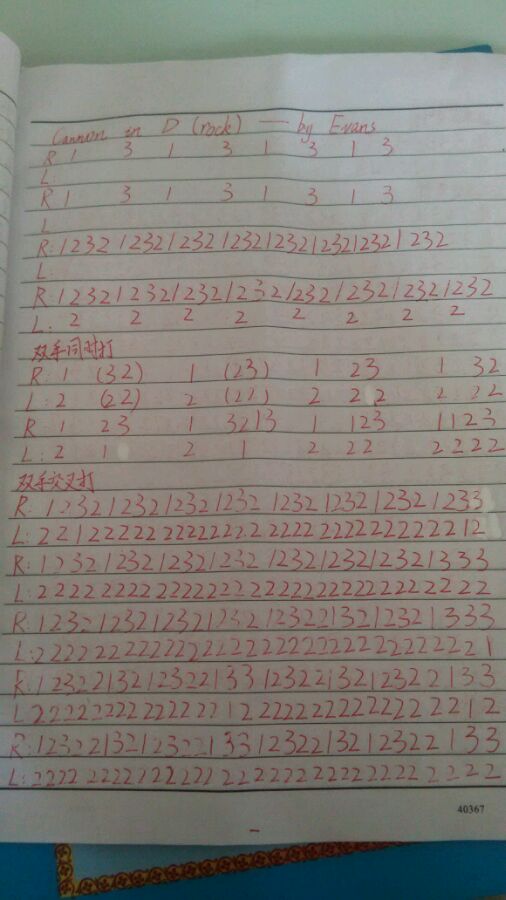 Cannon in D (rock) — by Evans
R 1 3 1 3 1 3 1 3
L:
R 1 3 1 3 1 3 1 3
L
R: 1232 1232 1232 1232 1232 1232 1232 1232
L:
R: 1232 1232 1232 1232 1232 1232 1232 1232
L: 2 2 2 2 2 2 2 2
双手同时打
R: 1 (32) 1 (23) 1 23 1 32
L: 2 (22) 2 (22) 2 22 2 32
R: 1 23 1 3213 1 123 1123
L: 2 1 2 1 2 22 2222
双手交叉打
R: 1232 1232 1232 1232 1232 1232 1232 1233
L: 2212222222222222222222222222212
R: 1232 1232 1232 1232 1232 1232 1232 1333
L: 2222222222222222222222222222222
R: 1232 1232 1232 1232 1232 2132 1232 1333
L: 2222222222222222222222222222221
R: 1232 2132 1232 2133 1232 2132 1232 2133
L: 2222222222222212222222222222212
R: 1232 2132 1232 2133 1232 2132 1232 2133
L: 2222222212222122222222222222222
40367